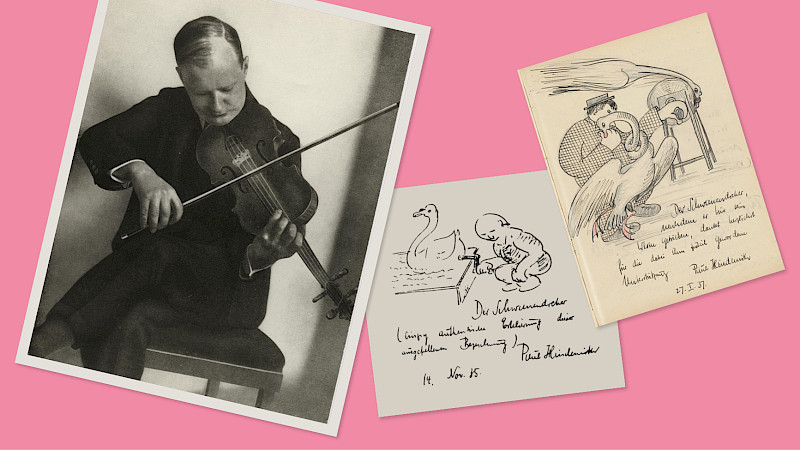 Der Schwanendreher
(einzig authentische Erklärung dieser
ausgefallenen Bezeichnung)
Paul Hindemith
14. Nov. 35.
Der Schwanendreher,
nachdem er hier sein
Wesen getrieben, dankt herzlichst
für die dabei ihm zuteil gewordene
Unterstützung Paul Hindemith
27. I. 37.